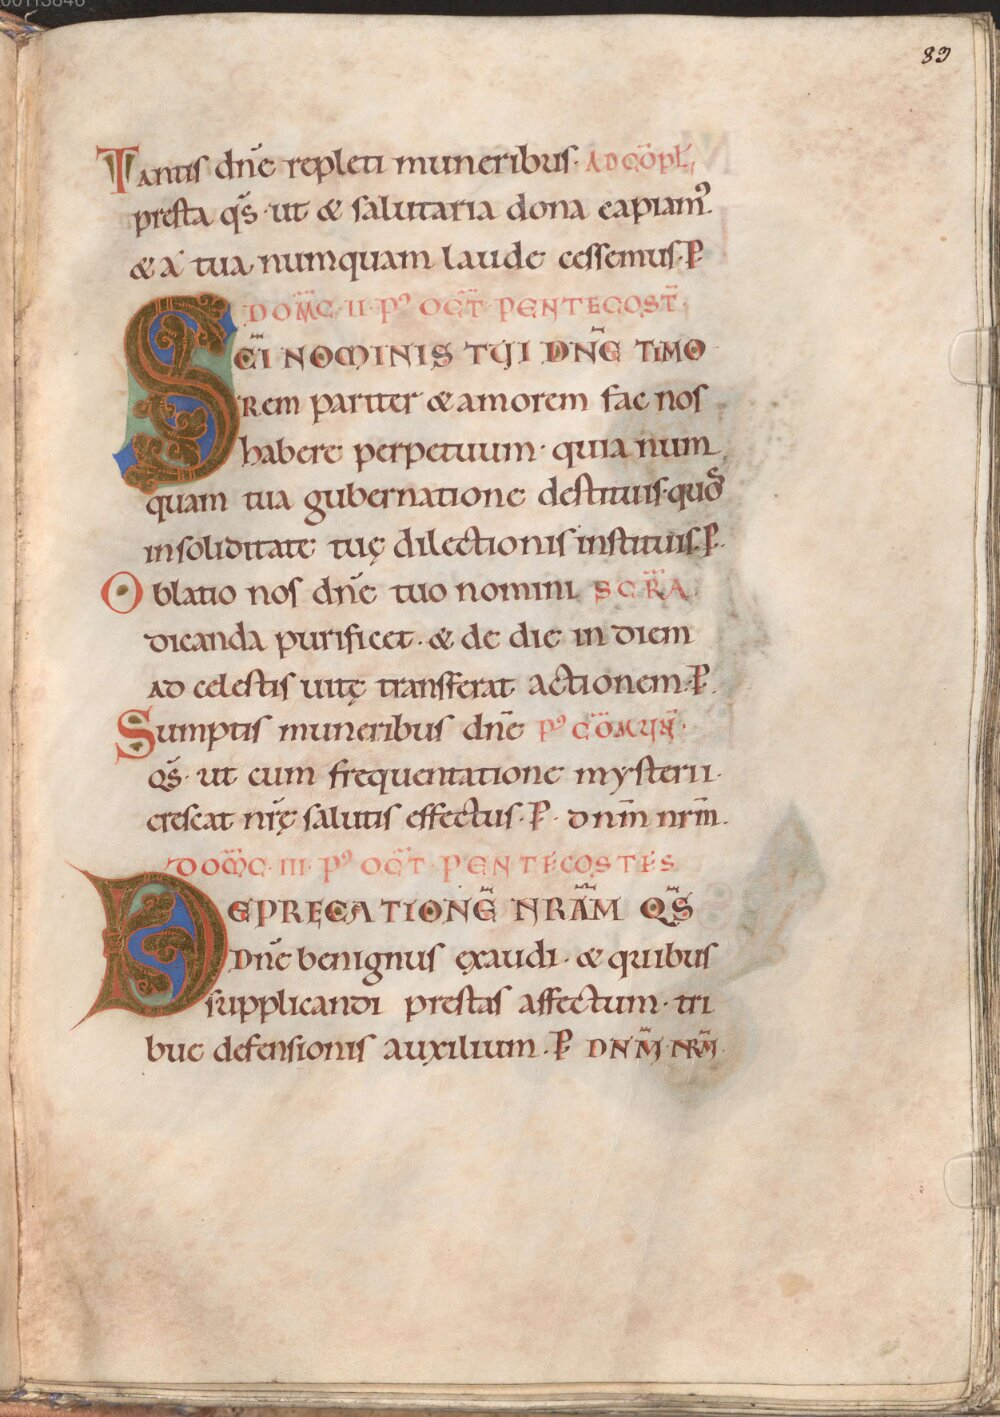 83
Tantis dn̄e repleti muneribus· AD CŌPL̄
presta qs̄· ut & salutaria dona capiam᾿.
& a᾿ tua numquam laude cessemus. P̄
DOM̄C· II· P᾿ OCT̄· PENTECOST̄
SC̄I NOMINIS TUI DN̄E TIMO
Rem pariter & amorem fac nos
habere perpetuum· quia num
quam tua gubernatione destituis· quos
in soliditate tuę dilectionis instituis. P̄.
Oblatio nos dn̄e tuo nomini SCR̄A
dicanda purificet. & de die in diem
AD celestis uitę transferat actionem. P̄.
Sumptis muneribus dn̄e P᾿ CŌMUN̄·
qs̄· ut cum frequentatione mysterii·
crescat nr̄ę salutis effectus. P̄· dnm̄ nrm̄.
DOM̄C· III· P᾿ OCT̄· PENTECOSTES
DEPRECATIONĒ NRĀM QS̄
Dn̄e benignus exaudi· & quibus
supplicandi prestas affectum· tri
bue defensionis auxilium. P̄ DNM̄ NRM̄